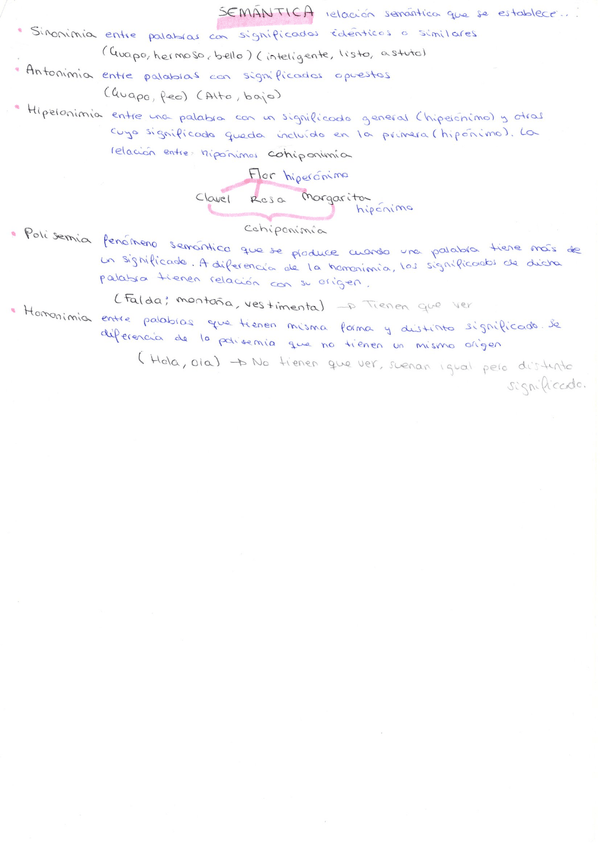 SEMÁNTICA relación semántica que se establece...
• Sinonimia entre palabras con significados idénticos o similares
(Guapo, hermoso, bello) (inteligente, listo, astuto)
• Antonimia entre palabras con significados opuestos
(Guapo, feo) (Alto, bajo)
• Hiperonimia entre una palabra con un significado general (hiperónimo) y otras
cuyo significado queda incluido en la primera (hipónimo). La
relación entre hipónimos cohiponimia
Flor hiperónimo
Clavel Rosa Margarita
hipónimo
Cohiponimia
• Polisemia fenómeno semántico que se produce cuando una palabra tiene más de
un significado. A diferencia de la homonimia, los significados de dicha
palabra tienen relación con su origen.
(Falda; montaña, vestimenta) → Tienen que ver
• Homonimia entre palabras que tienen misma forma y distinto significado. Se
diferencia de la polisemia que no tienen un mismo origen
(Hola, ola) → No tienen que ver, suenan igual pero distinto
significado.